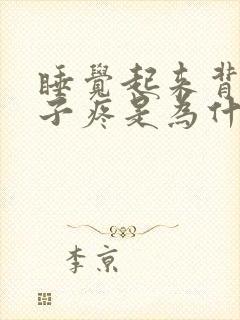 睡覺起来背
子疼是為什
李京